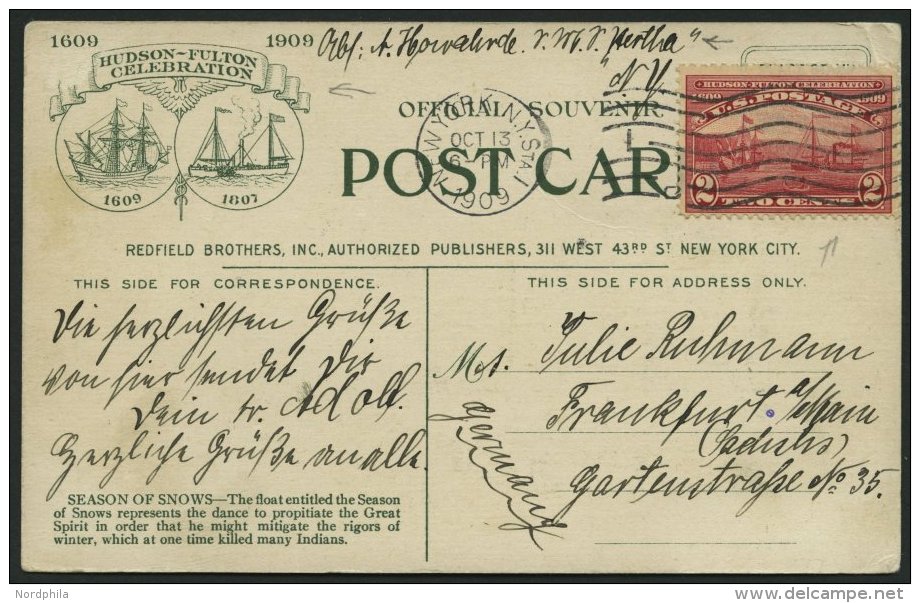 1609 1909
HUDSON-FULTON
CELEBRATION
1609
1807
Abs: A. Howaldvde. S. M. S. "Hertha"
"N.Y."
OFFICIAL SOUVENIR
POST CAR
NEW YORK, N.Y. STA. I
OCT 13
6-PM
1909
HUDSON-FULTON CELEBRATION
1609 1909
U.S. POSTAGE
2 2
TWO CENTS
REDFIELD BROTHERS, INC., AUTHORIZED PUBLISHERS, 311 WEST 43RD ST NEW YORK CITY.
THIS SIDE FOR CORRESPONDENCE.
Die herzlichsten Grüße
von hier sendet Dir
Dein tr. Adolf.
Herzliche Grüße an alle.
SEASON OF SNOWS—The float entitled the Season
of Snows represents the dance to propitiate the Great
Spirit in order that he might mitigate the rigors of
winter, which at one time killed many Indians.
THIS SIDE FOR ADDRESS ONLY.
Julie Ruhmann
Frankfurt a/Main
Gartenstraße No 35.
Germany
Nordphila